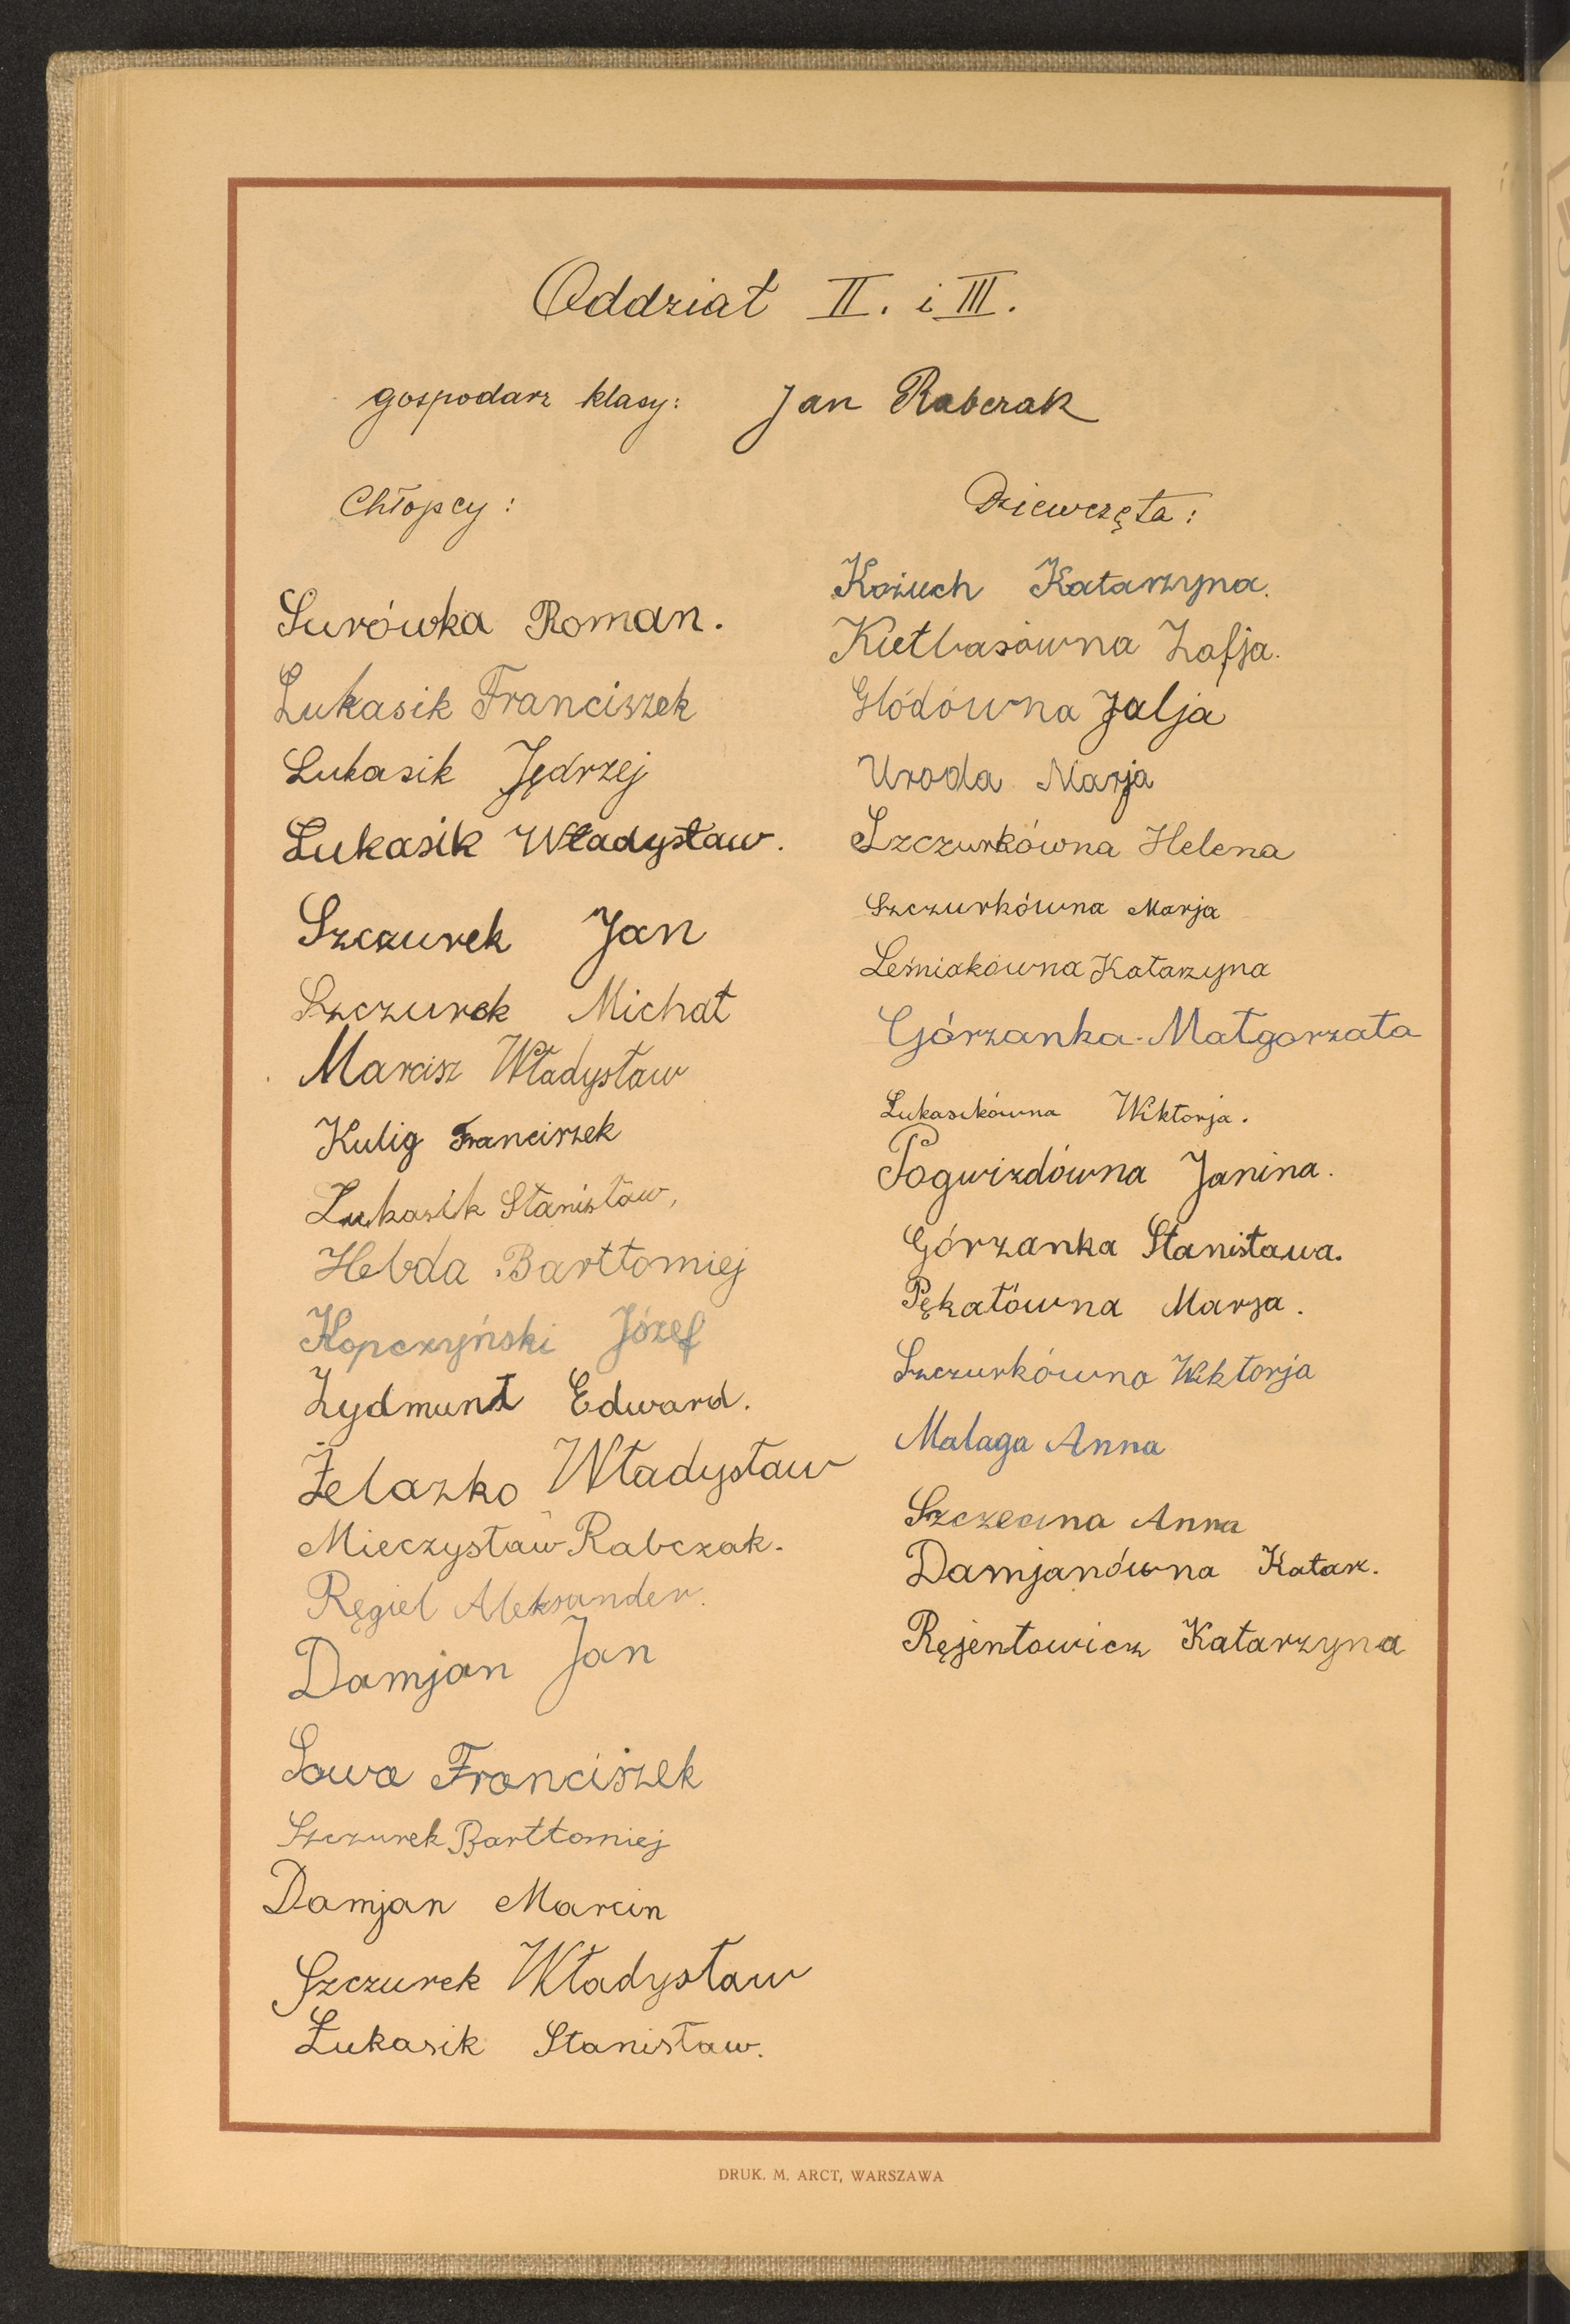 Oddział II. i III.
gospodarz klasy: Jan Rabczak
Chłopcy:
Surówka Roman.
Łukasik Franciszek
Łukasik Jędrzej
Łukasik Władysław.
Szczurek Jan
Szczurek Michał
Marcisz Władysław
Kulig Franciszek
Łukasik Stanisław,
Hebda Bartłomiej
Kopczyński Józef
Zydmunt Edward.
Żelazko Władysław
Mieczysław Rabczak.
Ręgiel Aleksander.
Damjan Jan
Sowa Franciszek
Szczurek Bartłomiej
Damjan Marcin
Szczurek Władysław
Łukasik Stanisław.
Dziewczęta:
Kożuch Katarzyna.
Kiełbasówna Zofja.
Głódówna Julja
Uroda Marja
Szczurkówna Helena
Szczurkówna Marja
Leśniakówna Katarzyna
Górzanka Małgorzata
Łukasikówna Wiktorja.
Pogwizdówna Janina.
Górzanka Stanisława.
Pękatówna Marja.
Szczurkówna Wiktorja
Malaga Anna
Szczecina Anna
Damjanówna Katarz.
Ręjentowicz Katarzyna
DRUK. M. ARCT, WARSZAWA